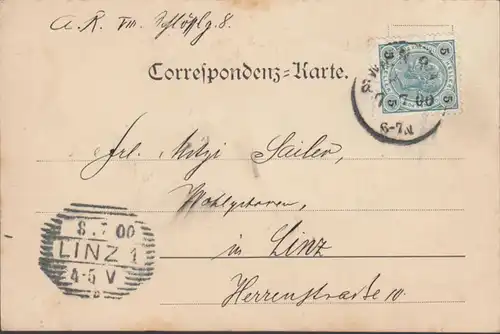 A. R. VIII. Schlößlg. 8.
Correspondenz-Karte.
5 5
5 5
7 7 00
6-7N
Frl. Mitzi Sailer,
Wohlgeboren,
in Linz
Herrenstraße 10.
8.7 00
LINZ 1
4-5 V